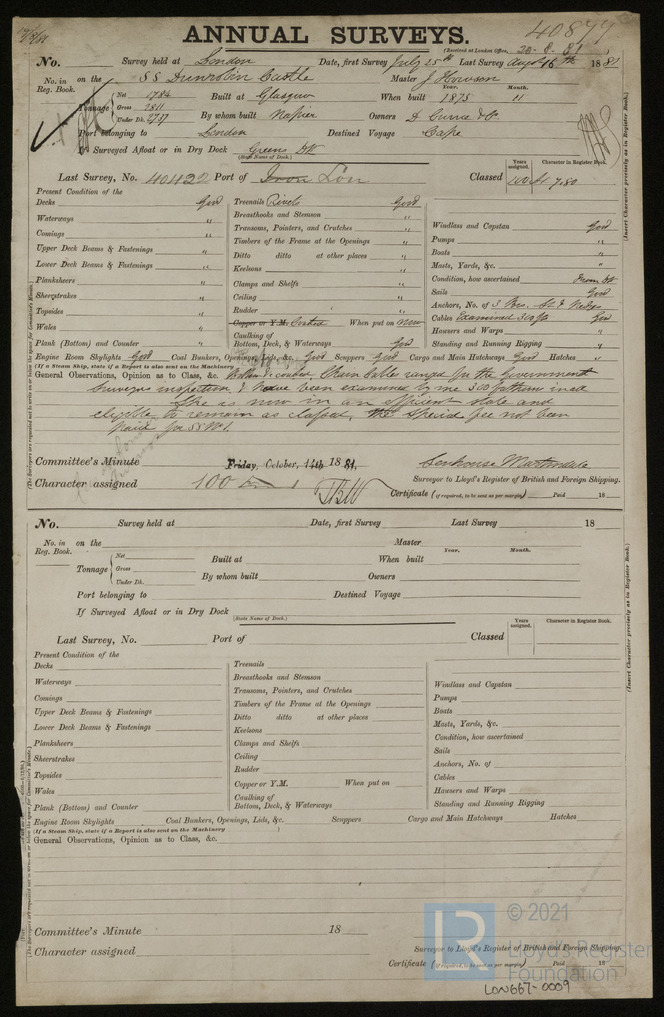 ANNUAL SURVEYS. 40877
(Received at London Office, 20.8.81)
No. Survey held at London Date, first Survey July 25th Last Survey Augst 16th 1881
No. in Reg. Book. on the SS Dunrobin Castle Master J Howson
Tonnage Net 1784 Built at Glasgow When built Year. 1875 Month. 11
Gross 2811
Under Dk. 2737 By whom built Napier Owners D Currie & Co
Port belonging to London Destined Voyage Cape
If Surveyed Afloat or in Dry Dock Greens DK
(State Name of Dock.)
Last Survey, No. 40422 Port of Iron Lon Classed Years assigned. 100 Character in Register Book. A1 7.80
(Insert Character precisely as in Register Book.)
Present Condition of the
Decks Good
Waterways "
Comings "
Upper Deck Beams & Fastenings "
Lower Deck Beams & Fastenings "
Planksheers "
Sheerstrakes "
Topsides "
Wales "
Plank (Bottom) and Counter "
Treenails Rivets Good
Breasthooks and Stemson "
Transoms, Pointers, and Crutches "
Timbers of the Frame at the Openings "
Ditto ditto at other places "
Keelsons "
Clamps and Shelfs "
Ceiling "
Rudder "
Copper or Y.M. Coated When put on now
Caulking of
Bottom, Deck, & Waterways Good
Windlass and Capstan Good
Pumps "
Boats "
Masts, Yards, &c. "
Condition, how ascertained From DK
Sails Good
Anchors, No. of
Cables Examined 300 fs Good
Hawsers and Warps "
Standing and Running Rigging "
Engine Room Skylights Good Coal Bunkers, Openings, Lids, &c. Good Scuppers Good Cargo and Main Hatchways Good Hatches "
(If a Steam Ship, state if a Report is also sent on the Machinery
General Observations, Opinion as to Class, &c. Chain Cables ranged for the Government
Surveyors inspection, & have been examined by me 300 fathoms in all
She is now in an efficient state and
eligible to remain as classed, The Special fee not been
paid for SS No 1.
Committee's Minute Friday, October, 14th 1881.
Character assigned 100
Surveyor to Lloyd's Register of British and Foreign Shipping.
Certificate (if required, to be sent as per margin) Paid 18
No. Survey held at Date, first Survey Last Survey 18
No. in Reg. Book. on the Master
Tonnage Net Built at When built Year. Month.
Gross
Under Dk. By whom built Owners
Port belonging to Destined Voyage
If Surveyed Afloat or in Dry Dock
(State Name of Dock.)
Last Survey, No. Port of Classed Years assigned. Character in Register Book.
(Insert Character precisely as in Register Book.)
Present Condition of the
Decks
Waterways
Comings
Upper Deck Beams & Fastenings
Lower Deck Beams & Fastenings
Planksheers
Sheerstrakes
Topsides
Wales
Plank (Bottom) and Counter
Treenails
Breasthooks and Stemson
Transoms, Pointers, and Crutches
Timbers of the Frame at the Openings
Ditto ditto at other places
Keelsons
Clamps and Shelfs
Ceiling
Rudder
Copper or Y.M. When put on
Caulking of
Bottom, Deck, & Waterways
Windlass and Capstan
Pumps
Boats
Masts, Yards, &c.
Condition, how ascertained
Sails
Anchors, No. of
Cables
Hawsers and Warps
Standing and Running Rigging
Engine Room Skylights Coal Bunkers, Openings, Lids, &c. Scuppers Cargo and Main Hatchways Hatches
(If a Steam Ship, state if a Report is also sent on the Machinery )
General Observations, Opinion as to Class, &c.
Committee's Minute 18
Character assigned
Surveyor to Lloyd's Register of British and Foreign Shipping.
Certificate (if required, to be sent as per margin) Paid 18
LR © 2021
Lloyd's Register
Foundation
LON667-0009